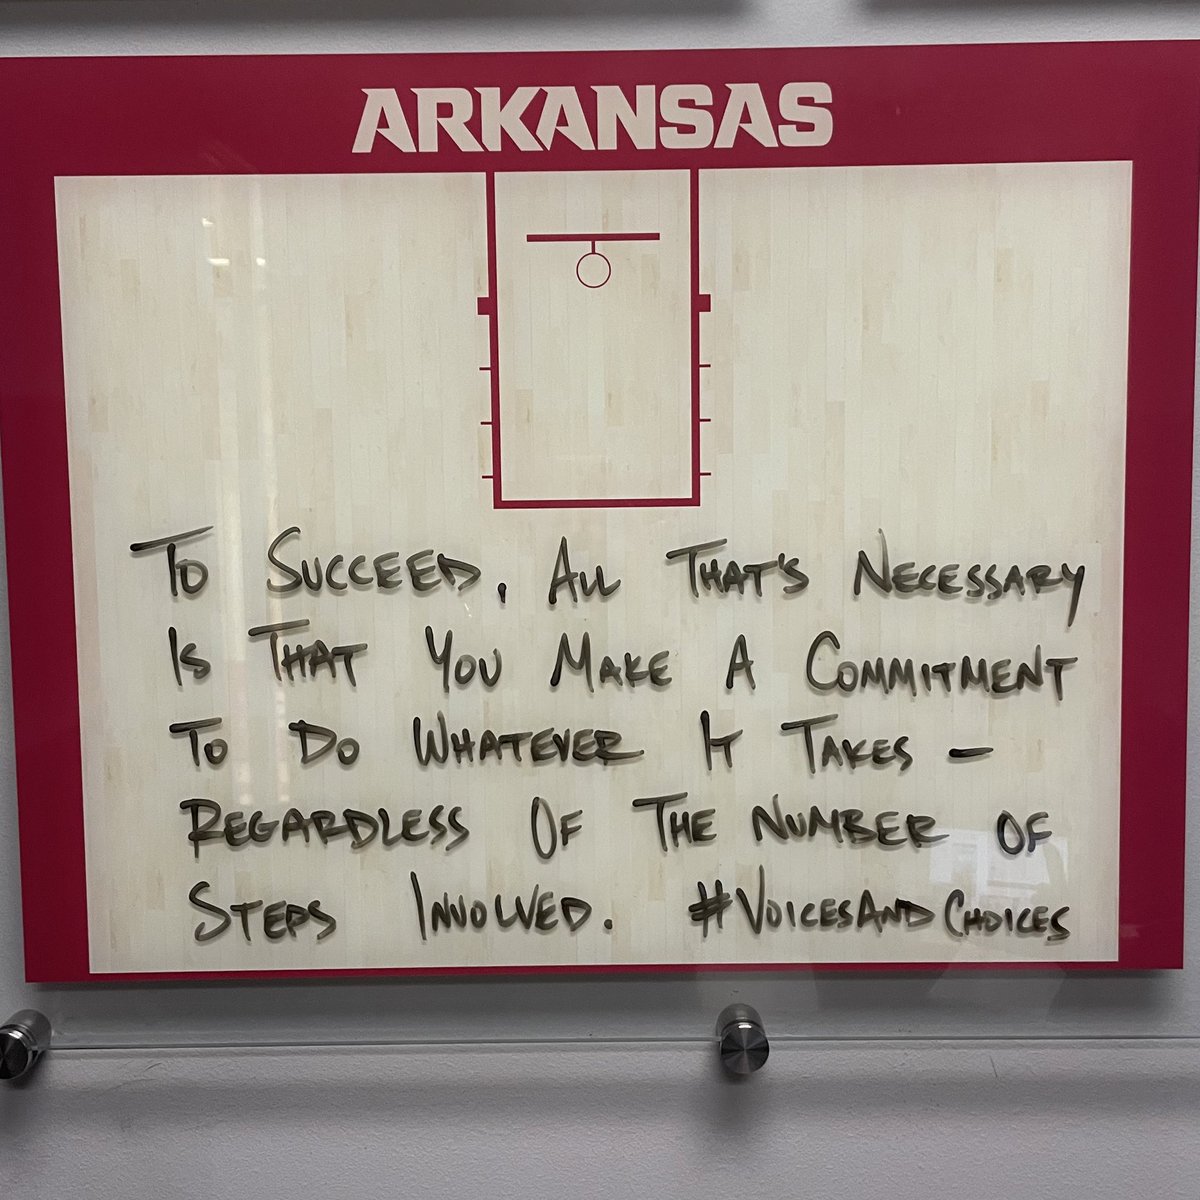 ARKANSAS
TO SUCCEED, ALL THAT'S NECESSARY
IS THAT YOU MAKE A COMMITMENT
TO DO WHATEVER IT TAKES -
REGARDLESS OF THE NUMBER OF
STEPS INVOLVED. #VOICESANDCHOICES